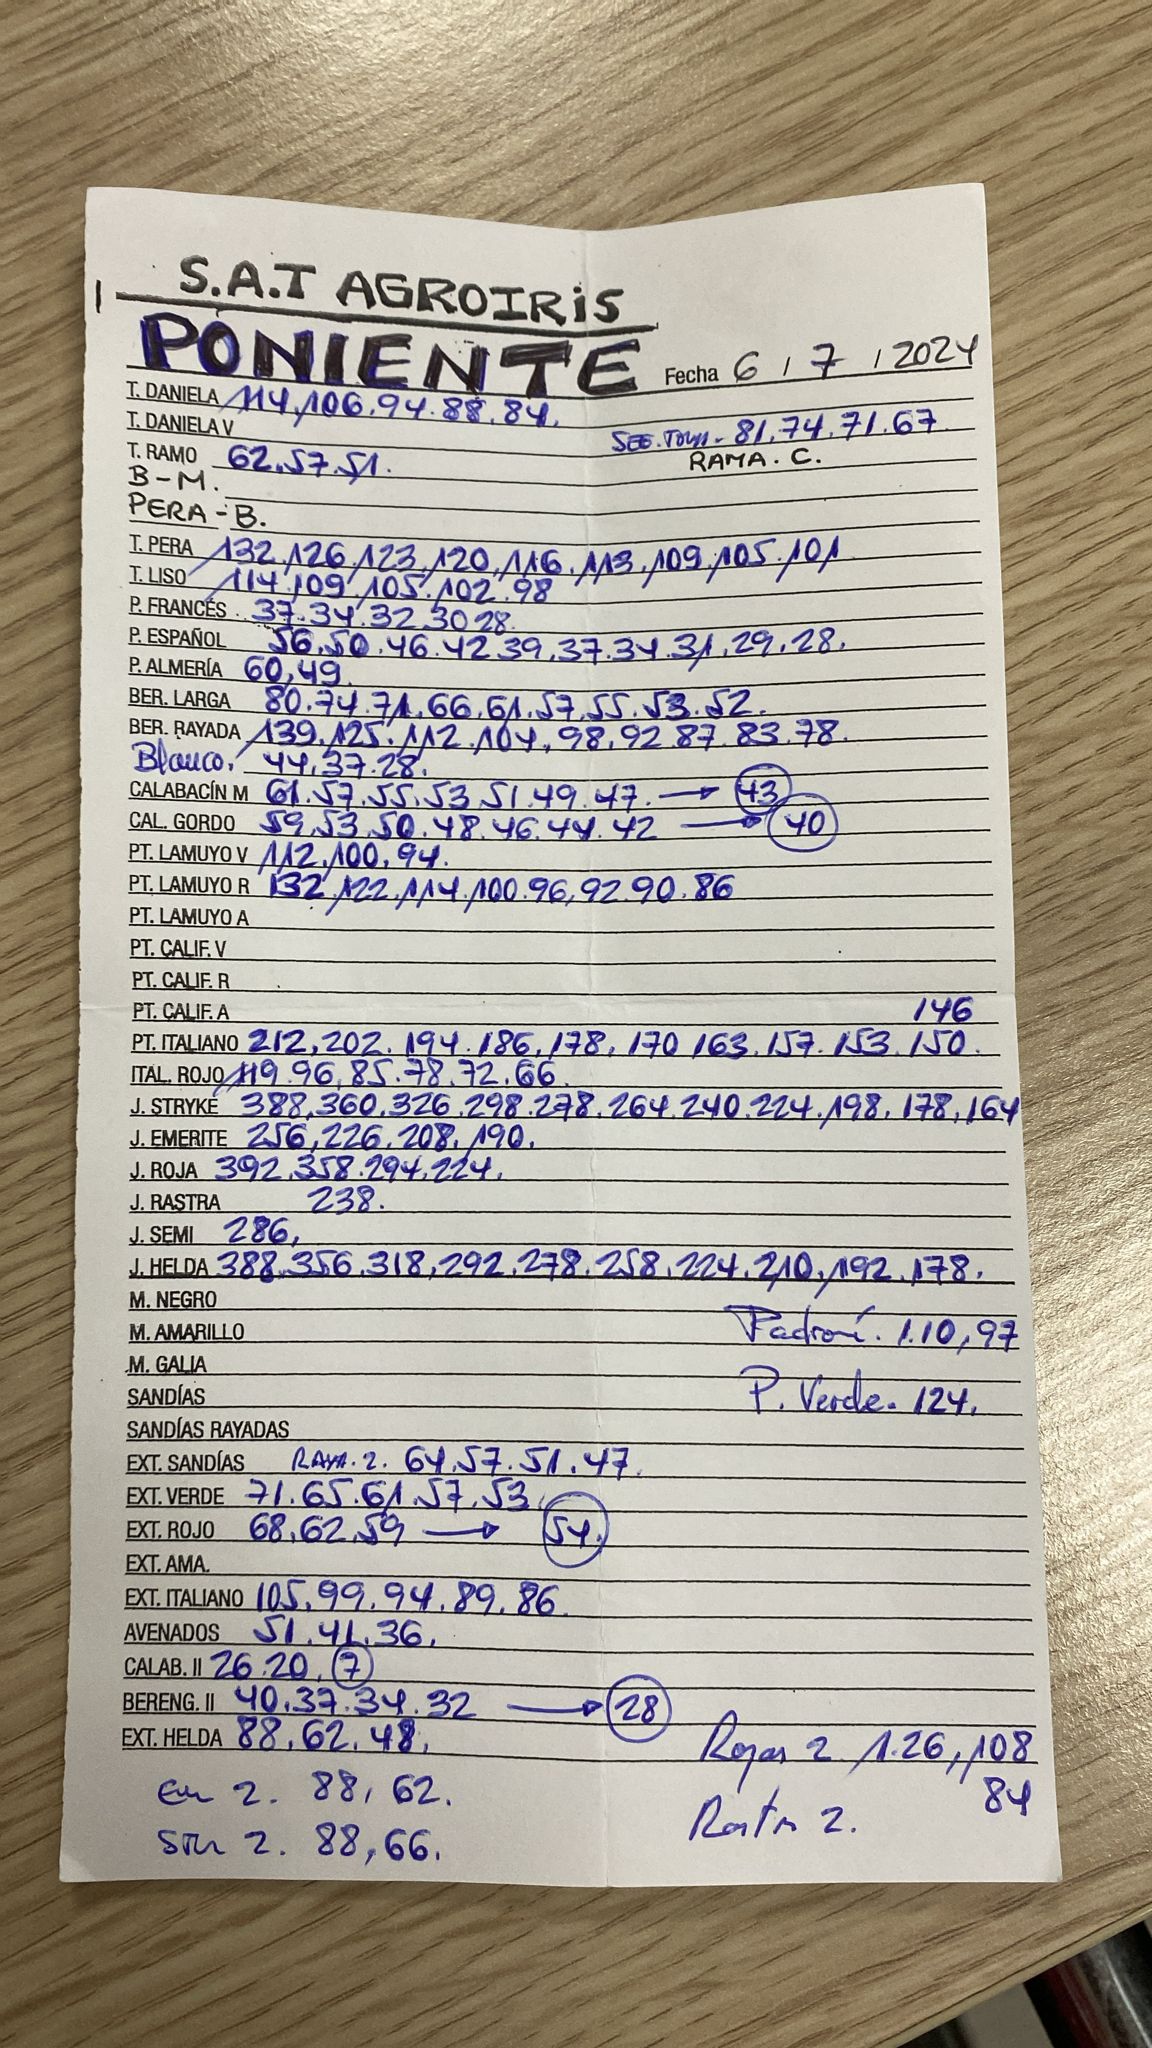 S.A.T AGROIRIS
PONIENTE Fecha 6 / 7 / 2024
T. DANIELA 114,106.94.88.84.
T. DANIELA V 81.74.71.67
T. RAMO 62.57.51. RAMA. C.
B-M.
PERA-B.
T. PERA 132,126,123,120,116,113,109,105,101
T. LISO 114,109,105,102.98
P. FRANCÉS 37.34.32.30 28.
P. ESPAÑOL 56.50.46.42 39.37.34.31.29.28.
P. ALMERÍA 60,49.
BER. LARGA 80.74.71.66.61.57.55.53.52.
BER. RAYADA 139.125.112.104.98.92 87.83.78.
Blanco. 44.37.28.
CALABACÍN M 61.57.55.53.51.49.47. → 43
CAL. GORDO 59.53.50.48.46.44.42 → 40
PT. LAMUYO V 112,100,94.
PT. LAMUYO R 132,122,114,100.96,92.90.86
PT. LAMUYO A
PT. CALIF. V
PT. CALIF. R
PT. CALIF. A 146
PT. ITALIANO 212,202.194.186,178,170 163.157.153.150.
ITAL. ROJO 119.96,85.78.72.66
J. STRYKE 388.360.326.298.278.264.240.224.198.178,164
J. EMERITE 256,226.208,190.
J. ROJA 392.358.294.224.
J. RASTRA 238.
J. SEMI 286,
J. HELDA 388.356.318,292.278.258.224.210,192.178.
M. NEGRO
M. AMARILLO Padroní. 1.10,97
M. GALIA
SANDÍAS P. Verde. 124.
SANDÍAS RAYADAS
EXT. SANDÍAS RAYA. 2. 64.57.51.47.
EXT. VERDE 71.65.61.57.53.
EXT. ROJO 68,62,59 → 54.
EXT. AMA.
EXT. ITALIANO 105.99.94.89.86
AVENADOS 51.41.36.
CALAB. II 26.20. 7
BERENG. II 40.37.34.32 → 28
EXT. HELDA 88.62.48. Rojas 2. 1.26,108
84
Em 2. 88,62.
Str 2. 88,66. Rastra 2.